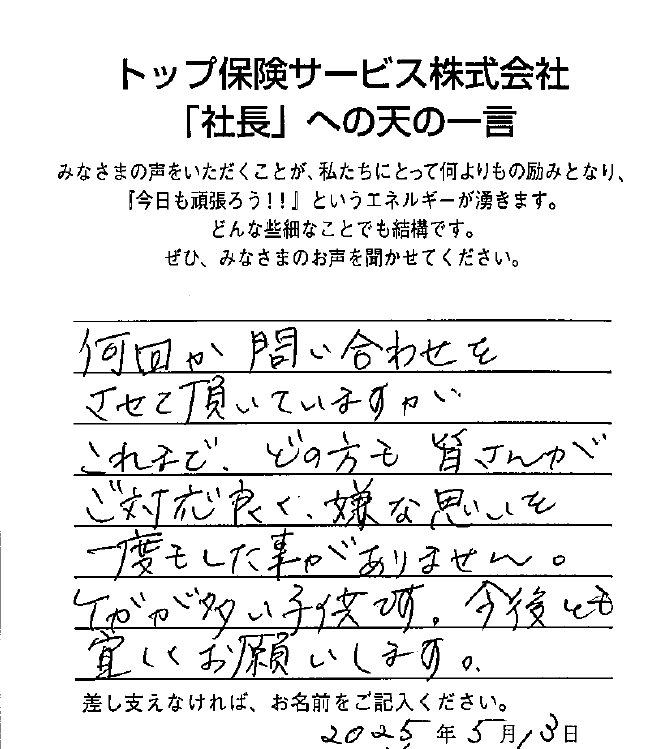 トップ保険サービス株式会社
「社長」への天の一言
みなさまの声をいただくことが、私たちにとって何よりもの励みとなり、
『今日も頑張ろう!!』というエネルギーが湧きます。
どんな些細なことでも結構です。
ぜひ、みなさまのお声を聞かせてください。
何回か問い合わせを
させて頂いていますが
これまで、どの方も皆さんが
ご対応良く、嫌な思いを
一度もした事がありません。
ケガが多い子供です。今後とも
宜しくお願いします。
差し支えなければ、お名前をご記入ください。
2025年5月13日